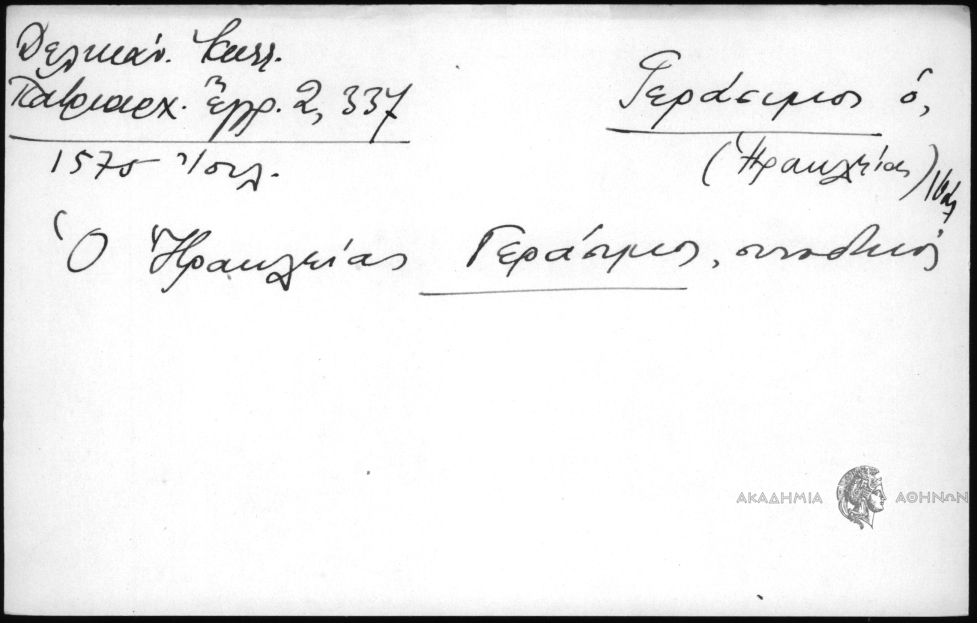 Δελικάν. Καλλ.
Πατριαρχ. Ἔγγρ. 2, 337
1575 Ἰουλ.
Γεράσιμος ὁ,
(Ἡρακλείας)
Ὁ Ἡρακλείας Γεράσιμος, συνοδικός
ΑΚΑΔΗΜΙΑ ΑΘΗΝΩΝ